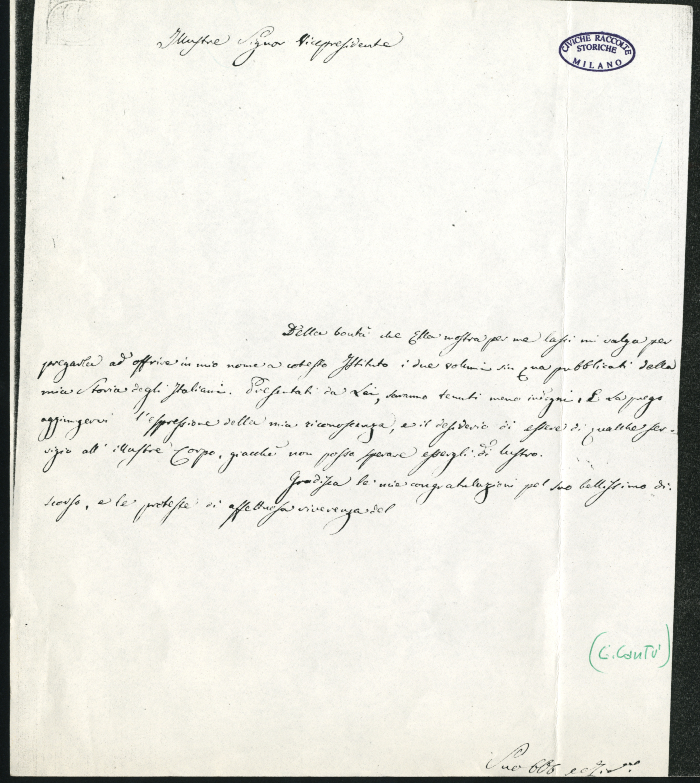 Illustre Signor Vicepresidente
CIVICHE RACCOLTE
STORICHE
MILANO
Della bontà che Ella mostra per me lasci mi valga per
pregarla ad offrire in mio nome a cotesto Istituto i due volumi sin qua pubblicati della
mia Storia degli Italiani. Presentati da Lei, saranno tenuti meno indegni. E La prego
aggiungervi l'espressione della mia riconoscenza, e il desiderio di essere di qualche ser-
vizio all' illustre Corpo, giacché non posso sperare essergli di lustro.
Gradisca le mie congratulazioni pel suo bellissimo di-
scorso, e le proteste di affettuosa riverenza del
(C. Cantù)
Suo